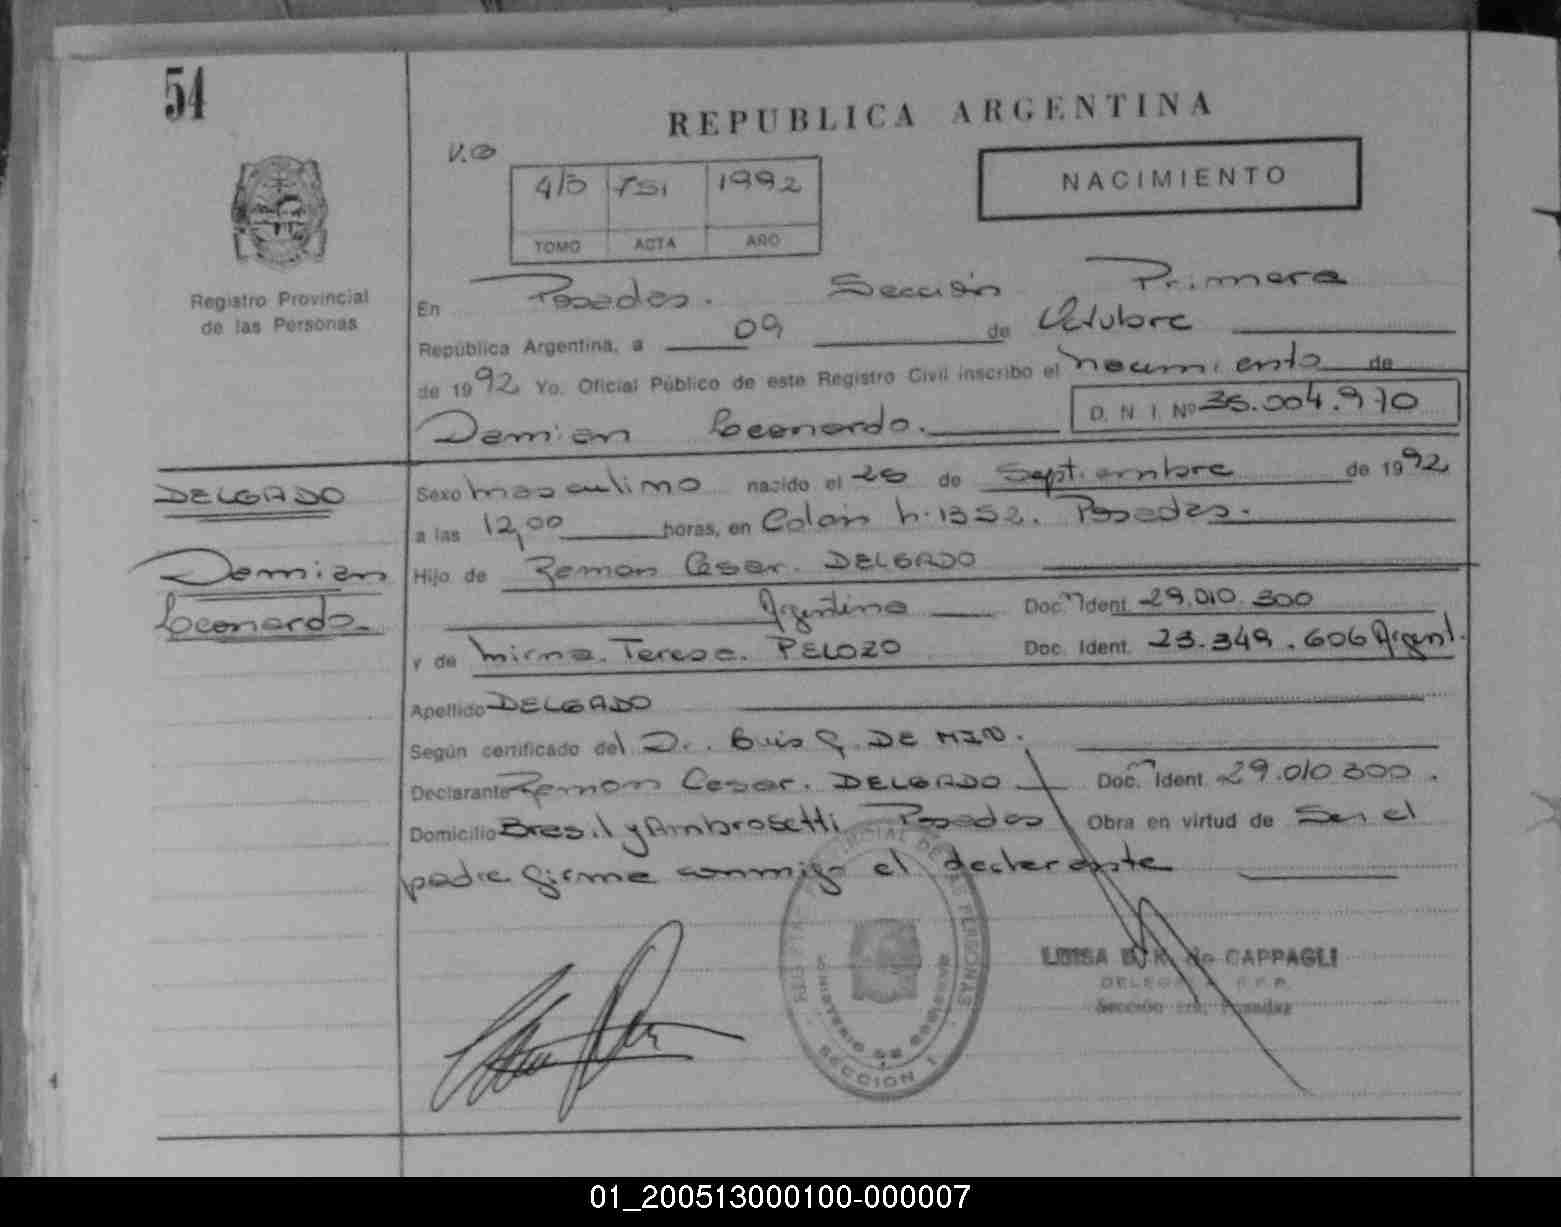 54
REPUBLICA ARGENTINA
V.B
NACIMIENTO
4/5 751 1992
TOMO ACTA AÑO
Registro Provincial
de las Personas
En Posadas. Sección Primera
República Argentina, a 09 de Octubre
de 1992 Yo. Oficial Público de este Registro Civil inscribo el nacimiento de
Damian Leonardo. D. N. I. Nº 36.004.970
DELGADO
Damian
Leonardo.
Sexo masculino nacido el 28 de Septiembre de 1992
a las 12,00 horas, en Colón n. 1352. Posadas.
Hijo de Ramon Cesar. DELGADO
Argentino Doc. Ident. 29.010.300
y de Mirna. Teresa. PELOZO Doc. Ident. 23.349.606 Argent.
Apellido DELGADO
Según certificado del Dr. Luis G. DE MIN.
Declarante Ramon Cesar. DELGADO Doc. Ident. 29.010300.
Domicilio Brasil y Ambrosetti Posadas Obra en virtud de Ser el
padre firma conmigo el declarante
REGISTRO PROVINCIAL DE LAS PERSONAS
MINISTERIO DE GOBIERNO
SECCION 1
LUISA B. K. de CAPPAGLI
DELEGADA R.P.P.
Sección 1ra. Posadas
01_200513000100-000007